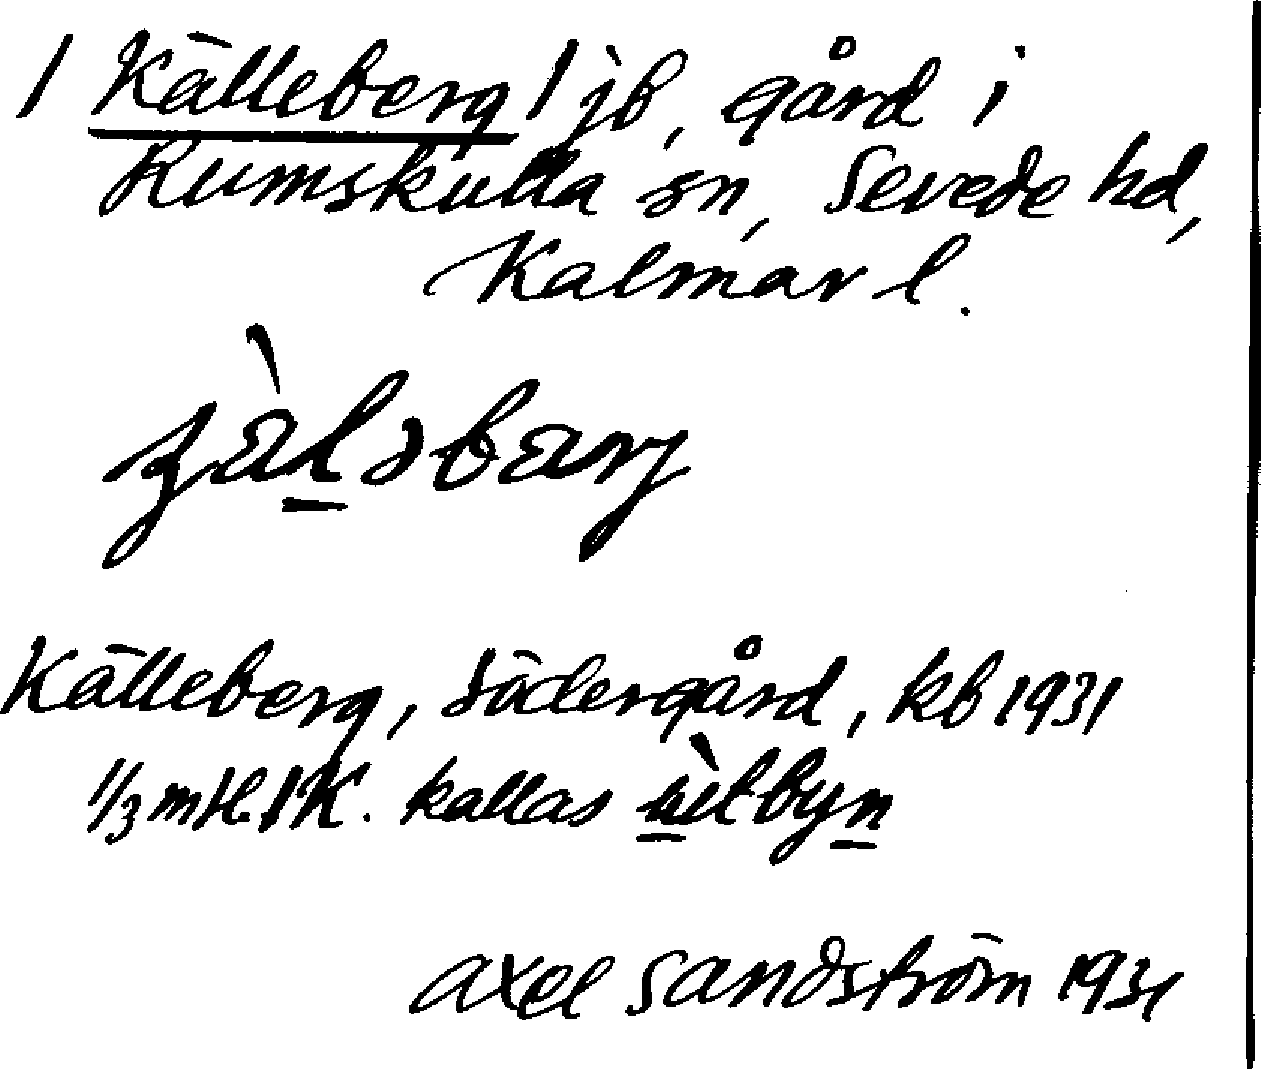 / Källeberg / jb, gård i
Rumskulla sn, Sevede hd,
Kalmar l.
Källeberg, södergård, kb 1931
1/3 mtl. i K. kallas ùtbyn
Axel Sandström 1931